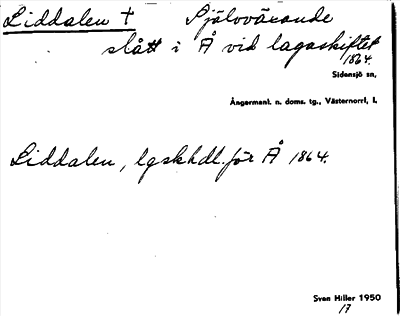 Liddalen † Självvärande
slått i Å vid lagaskiftet
1864.
Sidensjö sn,
Ångermanl. n. doms. tg., Västernorrl, l.
Liddalen, lgskhdl. för Å 1864.
Sven Hiller 1950
17